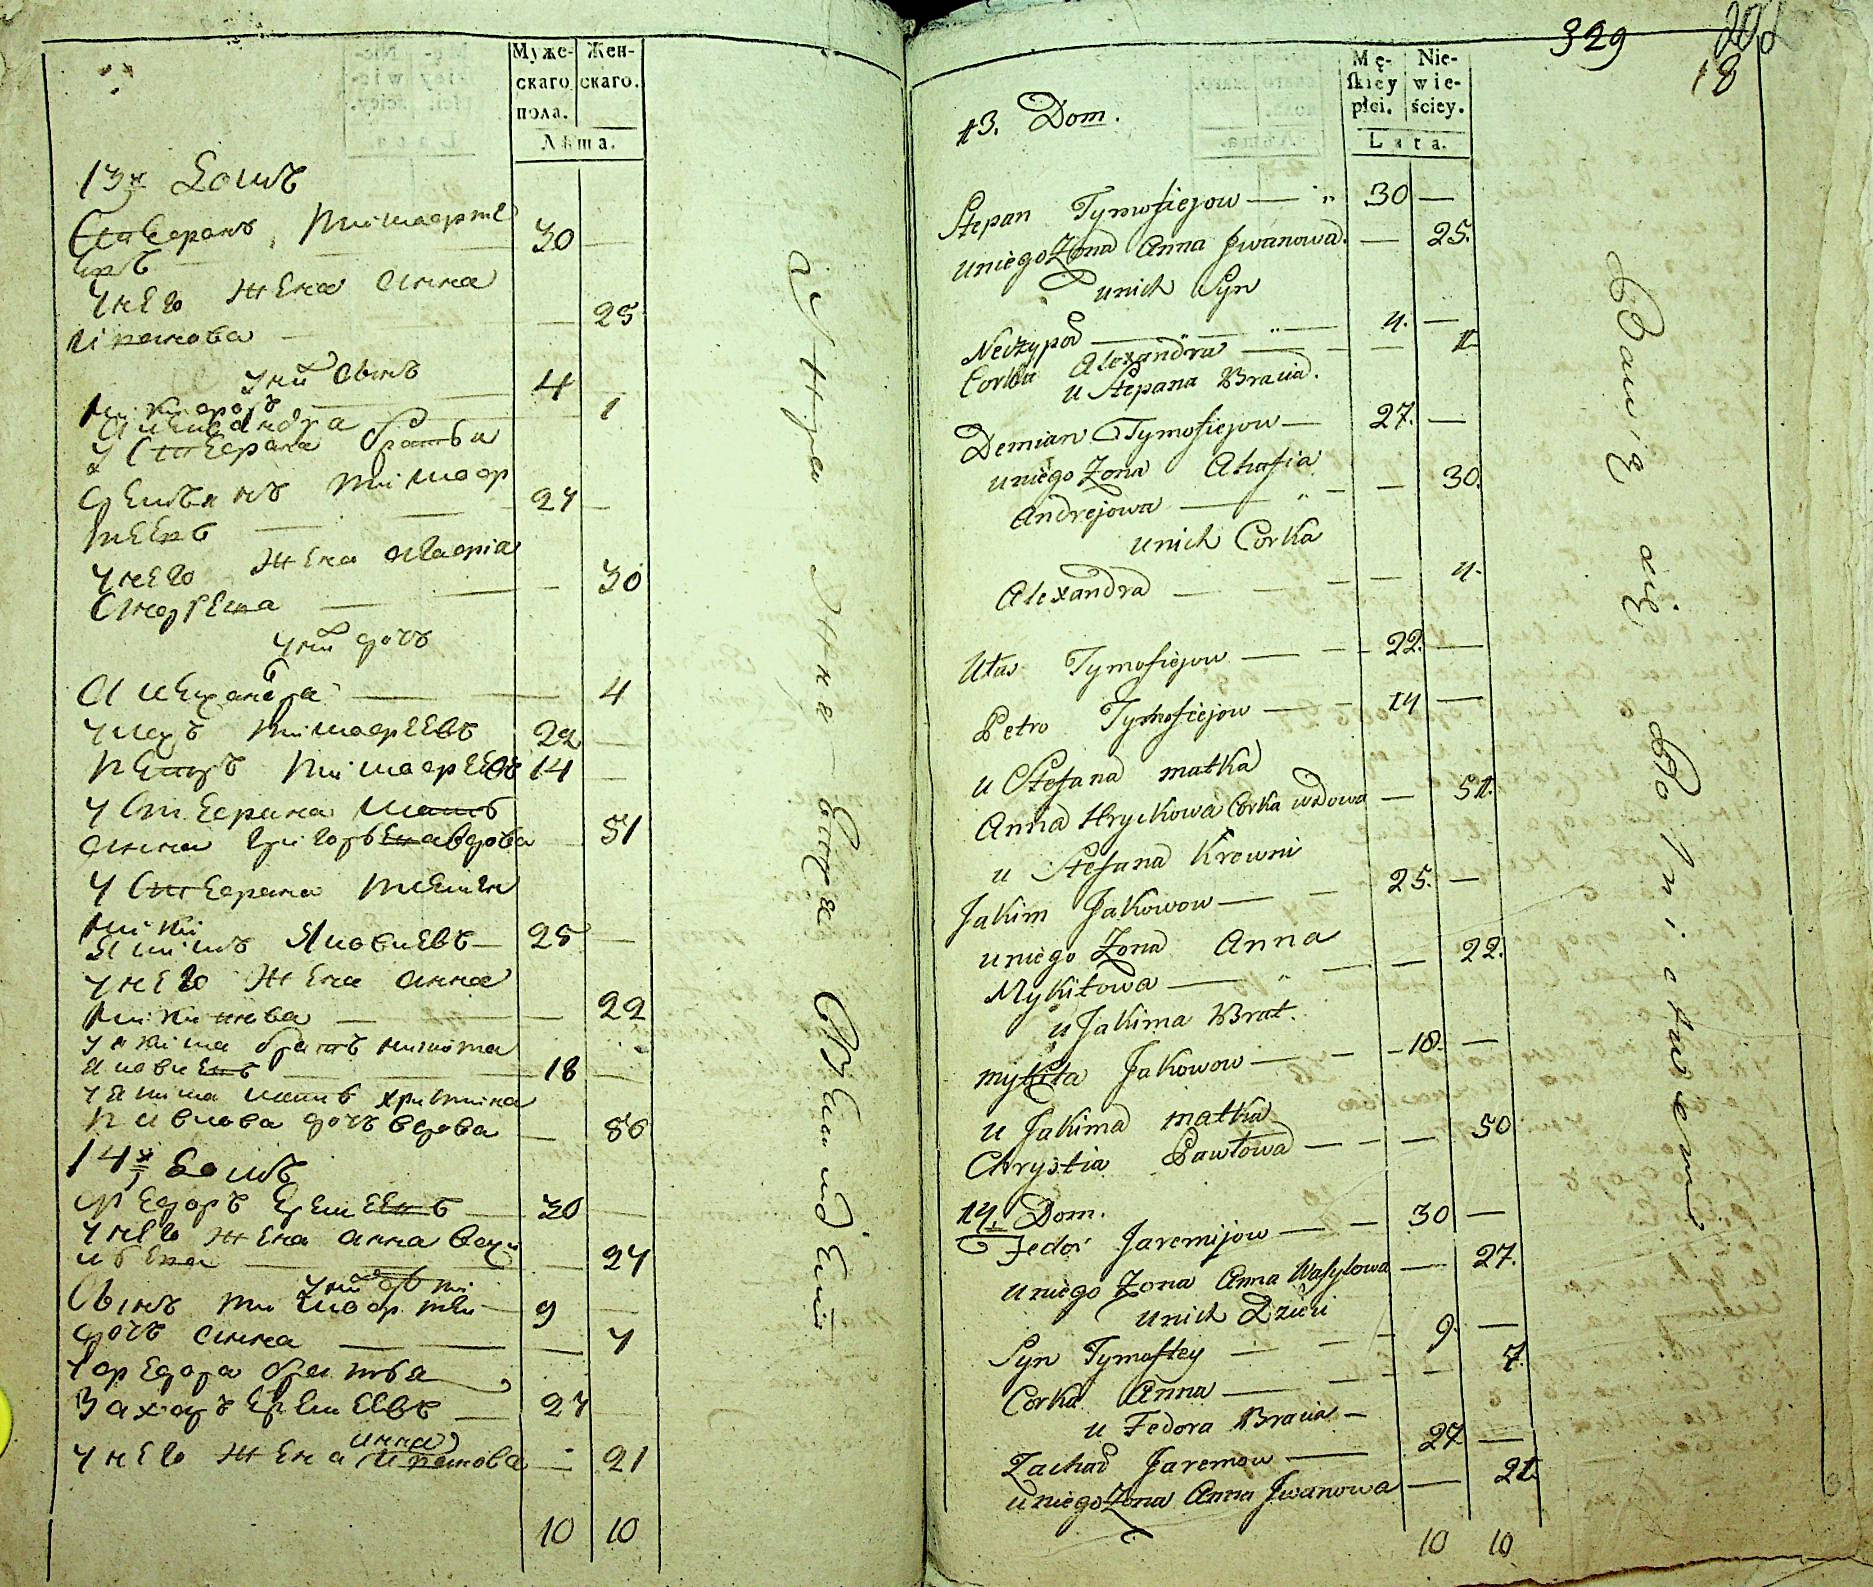 Муже-
скаго
пола.
Жен-
скаго.
Лѣта.
13й Домъ
Стефанъ Тимофеевъ 30 —
у него жена Анна
Иванова — 25
у ниⷯ сынъ
4 —
Александра 1
у Стефана братья
Демьянъ Тимоф
еевъ 27 —
у него жена Агафіа
Андреева — 30
у ниⷯ дочь
Александра — 4
Тимофеевъ 22 —
Петръ Тимофеевъ 14 —
у Стефана мать
Анна Григорьева вдова 51
у Стефана
Якимъ Яковлевъ — 25 —
у него жена Анна
Никитова — 22
у Якима братъ Никита
Яковлевъ — 18 —
у Якима мать Христина
Павлова дочь вдова — 50
14й Домъ
Федоръ Еремеевъ — 30 —
у него жена Анна
— 27
у ниⷯ дѣти
Сынъ Тимофей — 9 —
дочь Анна — 7
у Федора братья
Захаръ Еремеевъ — 27 —
у него жена Анна Иванова — 21
10 10
329
18
Mę-
skiey
płci.
Nie-
wie-
ściey.
Lata.
13. Dom.
Stepan Tymofiejow — 30 —
u niego Zona Anna Jwanowa. — 25.
u nich Syn
Neczypor — 4. —
Corka Alexandra — 1
u Stepana Bracia.
Demian Tymofiejow — 27. —
u niego Zona Ahafia
Andrejowa — 30.
u nich Corka
Alexandra — 4.
Ułas Tymofiejow — 22. —
Petro Tymofiejow — 14 —
u Stefana matka
Anna Hryckowa Corka wdowa — 51.
u Stefana Krewni
Jakim Jakowow — 25. —
u niego Zona Anna
Mykitowa — 22.
u Jakima Brat.
Mykita Jakowow — 18. —
u Jakima matka
Chrystia Pawłowa — 50
14. Dom.
Fedor Jaremijow — 30 —
u niego Zona Anna Wasylowa — 27.
u nich Dzieci
Syn Tymoftey — 9. —
Corka Anna — 7.
u Fedora Bracia —
Zachar Jaremow — 27 —
u niego Zona Anna Jwanowa — 21.
10 10